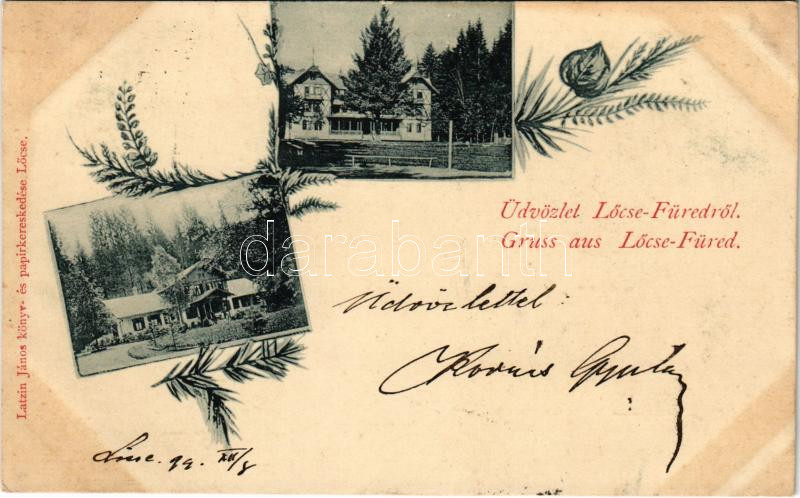 Üdvözlet Lőcse-Füredről.
Gruss aus Lőcse-Füred.
Üdvözlettel:
Kovács Gyula
99. XII/8
Latzin János könyv- és papirkereskedése Lőcse.
darabanth